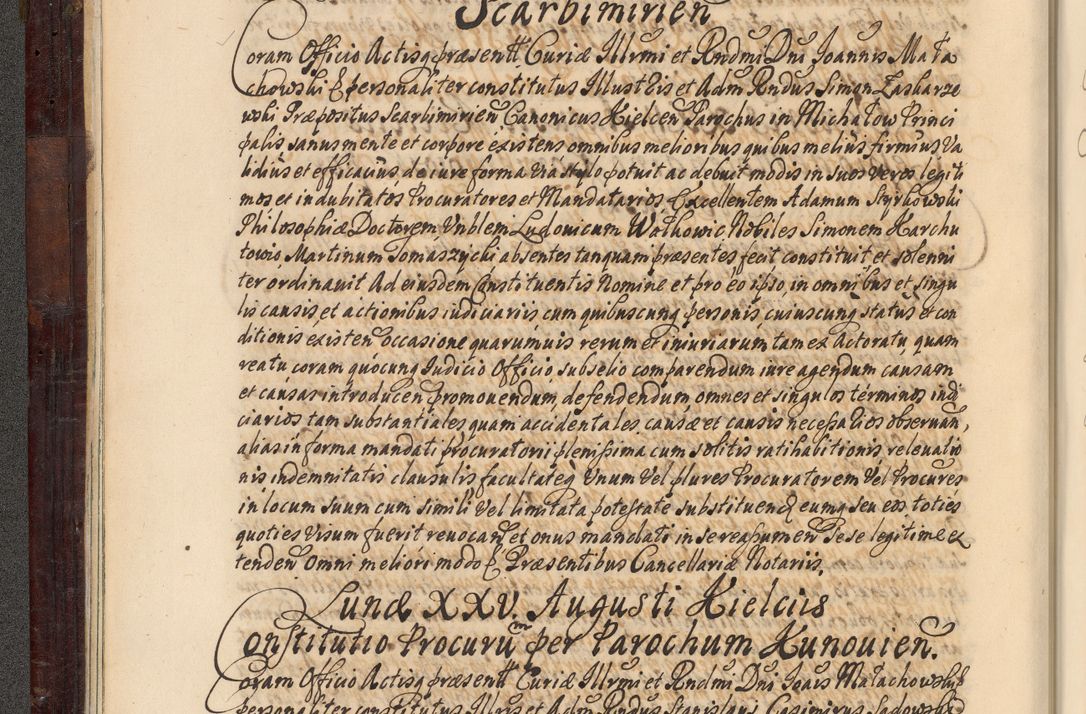 Scarbimirien
Coram Officio Actisq̃ præsentt. Curiæ Illr̃mi et Rndmi Dni Joannis Mała
chowski Eᵱ personaliter constitutus Illust Eis et Adm Rndus Simon Zakarze
wski Præpositus Scarbimirien Canonicus Kielcen Parochus in Michałow Princi
palis sanus mente et corpore existens omnibus melioribus quibus melius firmius va
lidius et efficacius de iure forma via stylo potuit ac debuit modis in suos veros legiti
mos et indubitatos Procuratores et Mandatarios Excellentem Adamum Styrkowski
Philosophiæ Doctorem Vnblem Ludovicum Wałkowic Nobiles Simonem Karchu
towic, Martinum Tomaszycki absentes tanquam præsentes fecit constituit et solenni
ter ordinauit Ad eiusdem Constituentis Nomine et pro eo ipso, in omnibus et singu
lis causis et actionibus iudiciariis, cum quibuscunq̃ personis, cuiuscunq̃ status et con
ditionis existen occasione quarumuis rerum et iniuriarum tam ex Actoratu, quam
reatu coram quocunq̃ Iudicio Officio, subselio comparendum iure agendum causam
et causas introducen promouendum, defendendum, omnes et singulos terminos iudi
ciarios tam substantiales quam accidentales causæ et causis necessarios obseruan,
alias in forma mandati procuratorii plenissima cum solitis ratihabitionis releuatio
nis indemnitatis clausulis facultateq̃ Vnum Vel plures Procuratorem Vel Procures
in locum suum cum simili Vel limitata potestate substituendi eumq̃ seu eos, toties
quoties Visum fuerit reuocan et onus mandati in se reassumen sese legitime ex
tenden Omni meliori modo Eᵱ Præsentibus Cancellariæ Notariis.
Lunæ XXV. Augusti Kielciis
Constitutio Procurum per Parochum Kunouien.
Coram Officio Actisq̃ præsentt Curiæ Illrmi et Rndmi Dni Joais Małachowski
personaliter constitutus Illris et Adm Rndus Stanislaus Casimirus Sadowski